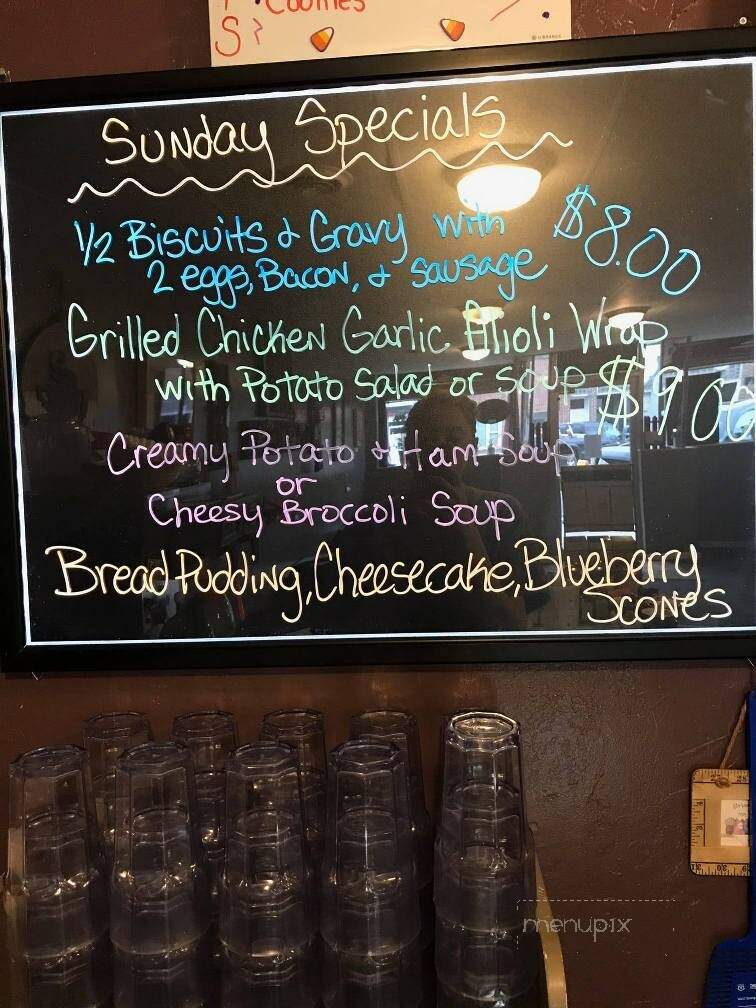 Cookies
S
Sunday Specials
1/2 Biscuits & Gravy with $8.00
2 eggs, Bacon, & Sausage
Grilled Chicken Garlic Alioli Wrap
with Potato Salad or Soup $9.00
Creamy Potato & Ham Soup
or
Cheesy Broccoli Soup
Bread Pudding, Cheesecake, Blueberry
Scones
menupix